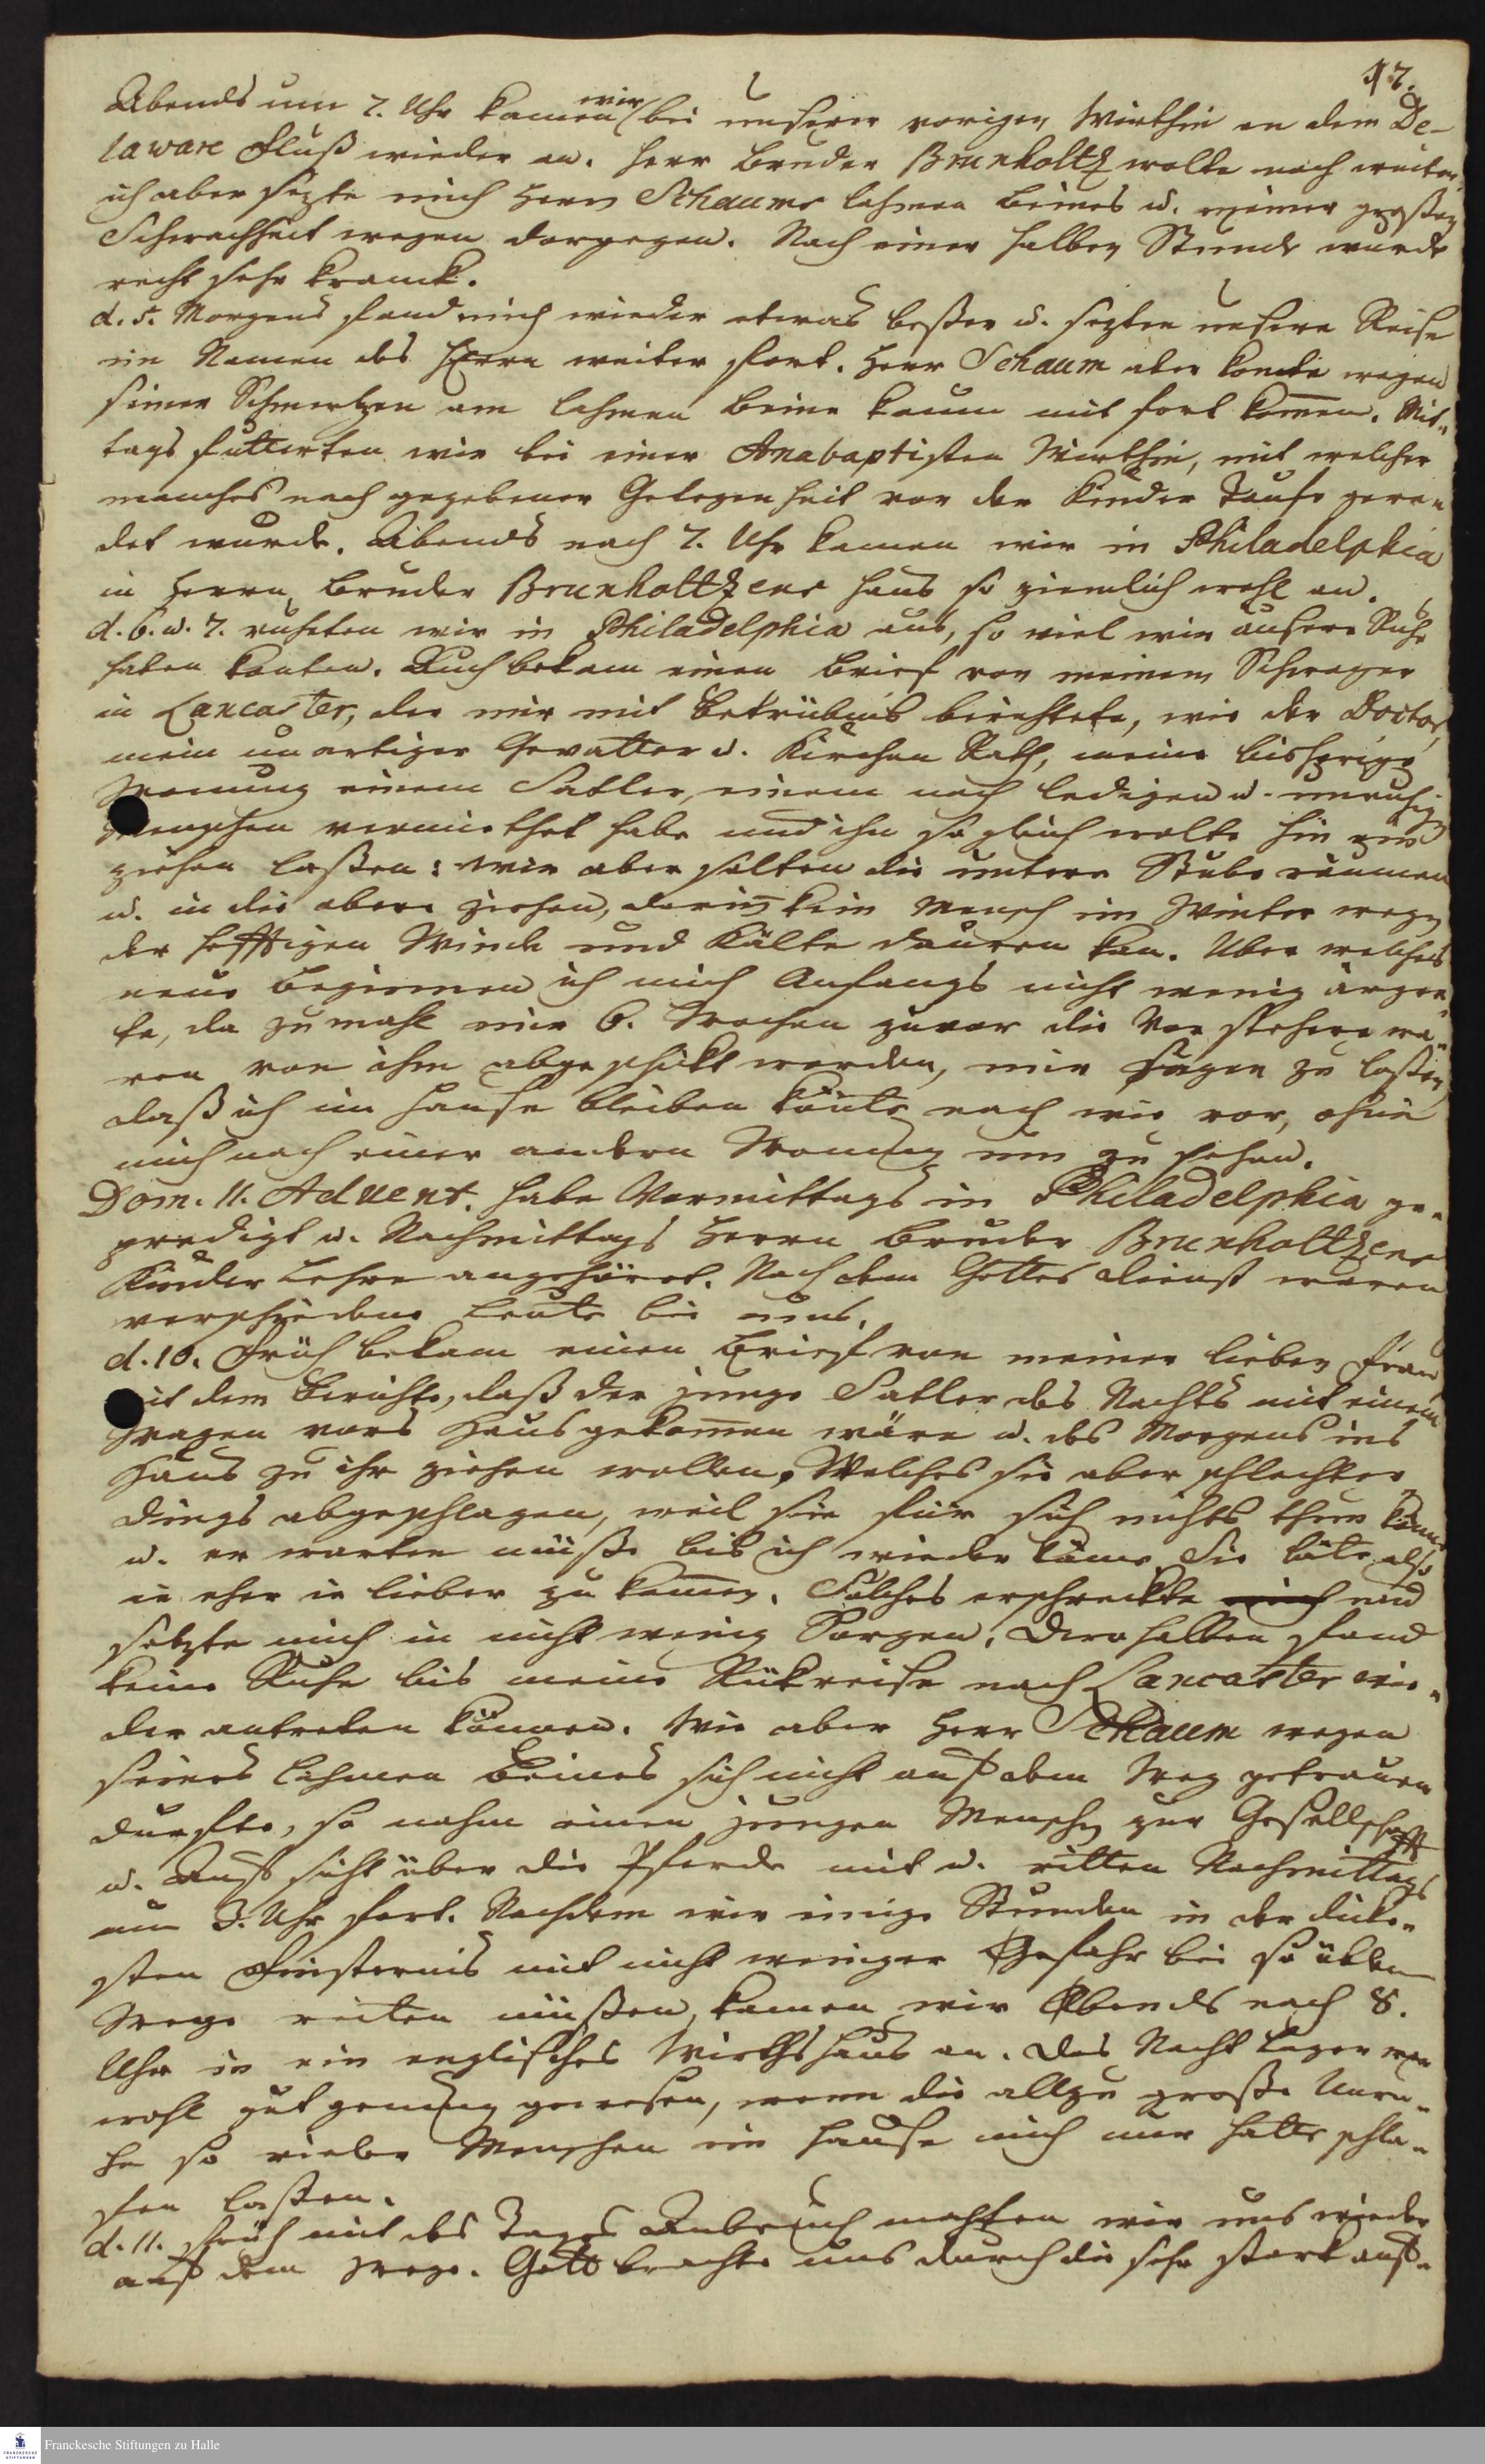 17.
Abends um 7. Uhr kamen wir bei unserer vorigen Wirthin an dem De-
laware Fluß wieder an. Herr Bruder Brunholtz wolte noch weiter,
ich aber sezte mich Herrn Schaums lahmen Beines u. meiner großen
Schwachheit wegen dargegen. Nach einer halben Stunde wurde
recht sehr kranck.
d. 5. Morgens fand mich wieder etwas beßer u. sezten unsere Reise
im Namen des HErrn weiter fort. Herr Schaum aber konte wegen
seiner Schmertzen am lahmen Beine kaum mit fort kom̅en. Mit-
tags futterten wir bei einer Anabaptisten Wirthin, mit welcher
manches nach gegebener Gelegenheit von der Kinder Taufe gere-
det wurde. Abends nach 7. Uhr kamen wir in Philadelphia
in Herrn Bruder Brunholtzens Haus so ziemlich wohl an.
d. 6. u. 7. ruheten wir in Philadelphia aus, so viel wir äusere Ruhe
haben konten. Auch bekam einen Brief von meinem Schwager
in Lancaster, der mir mit Betrübnis berichtete, wie der Doctor,
mein unartiger Gevatter u. Kirchen Rath, meine bisherige
Wonung einem Satler, einem noch ledigen u. unruhig
Menschen vermiethet habe und ihn so gleich wolte hin ein
ziehen laßen: wir aber solten die untere Stube räumen
u. in die obere ziehen, darin̅ kein Mensch im Winter wegen
der hefftigen Winde und Kälte dauren kan. Uber welches
neue Beginnen ich mich Anfangs nicht wenig ärger-
te, da zumahl mir 6. Wochen zuvor die Vorstehere wa-
ren von ihm abgeschickt worden, mir sagen zu laßen,
daß ich im Hause bleiben könte nach wie vor, ohne
mich nach einer andern Wonung um zu sehen.
Dom. 11. Advent. habe Vormittags in Philadelphia ge-
predigt u. Nachmittags Herrn Bruder Brunholtzens
Kinder Lehre angehöret. Nach dem Gottes dienst waren
verschiedene Leute bei uns.
d. 10. Früh bekam einen Brief von meiner lieben Frau
mit dem Berichte, daß der junge Satler des Nachts mit einem
Wagen vors Haus gekom̅en wäre u. des Morgens ins
Haus zu ihr ziehen wollen, Welches sie aber schlechter-
dings abgeschlagen, weil sie für sich nichts thun könne
u. er warten müße bis ich wieder käme. Sie bäte also
ie eher ie lieber zu kom̅en. Solches erschreckte mich und
setzte mich in nicht wenig Sorgen. Derohalben fand
keine Ruhe bis meine Rükreise nach Lancaster wie-
der antreten können. Wie aber Herr Schaum wegen
seines lahmen Beines sich nicht auf dem Weg getrauen
durfte, so nahm einen jungen Menschen zur Gesellschafft
u. Aufsicht über die Pferde mit u. ritten Nachmittags
um 3. Uhr fort. Nachdem wir einige Stunden in der dicke-
sten Finsternis mit nicht weniger Gefahr bei so üblem
Wege reiten müßen, kamen wir Abends nach 8.
Uhr in ein englisches Wirthshaus an. Das Nacht Lager war
wohl gut genung gewesen, wenn die allzu große Unru-
he so vieler Menschen im Hause mich nur hatte schla-
fen laßen.
d. 11. Früh mit des Tages Anbruch machten wir uns wieder
auf dem Wege. Gott brachte uns durch die sehr starck auf-
Franckesche Stiftungen zu Halle